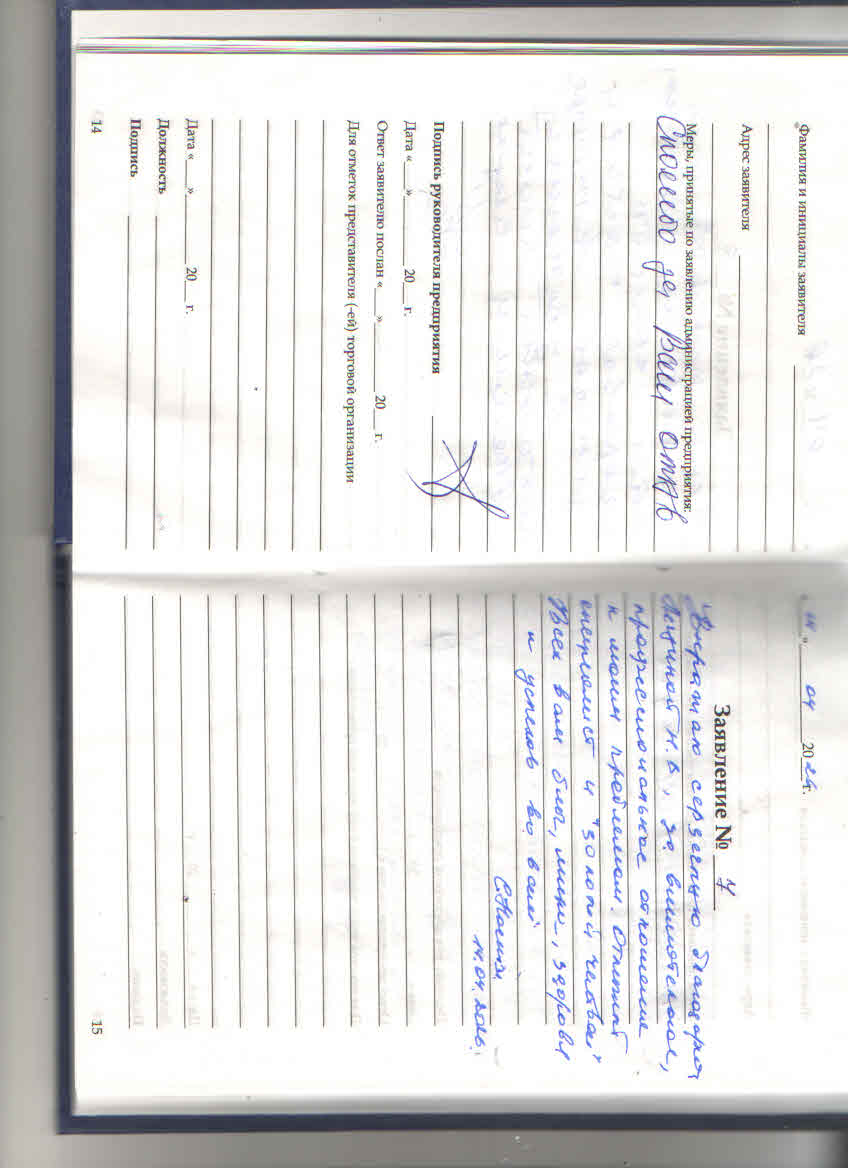 Фамилия и инициалы заявителя
Адрес заявителя
Меры, принятые по заявлению администрацией предприятия:
Спасибо за Ваш отзыв
Подпись руководителя предприятия
Дата «___»________ 20___ г.
Ответ заявителю послан «___»________ 20___ г.
Для отметок представителя (-ей) торговой организации
Дата «___»________ 20___ г.
Должность
Подпись
14
» 04 20 г.
Заявление № 7
Выражаю сердечную благодарн
Н. В, за внимательное,
профессиональное отношение
к моим проблемам. Отличный
специалист и "золотой человек"
Всех вам благ, мира, здоровья
и успехов во всем
14.04.2026
15